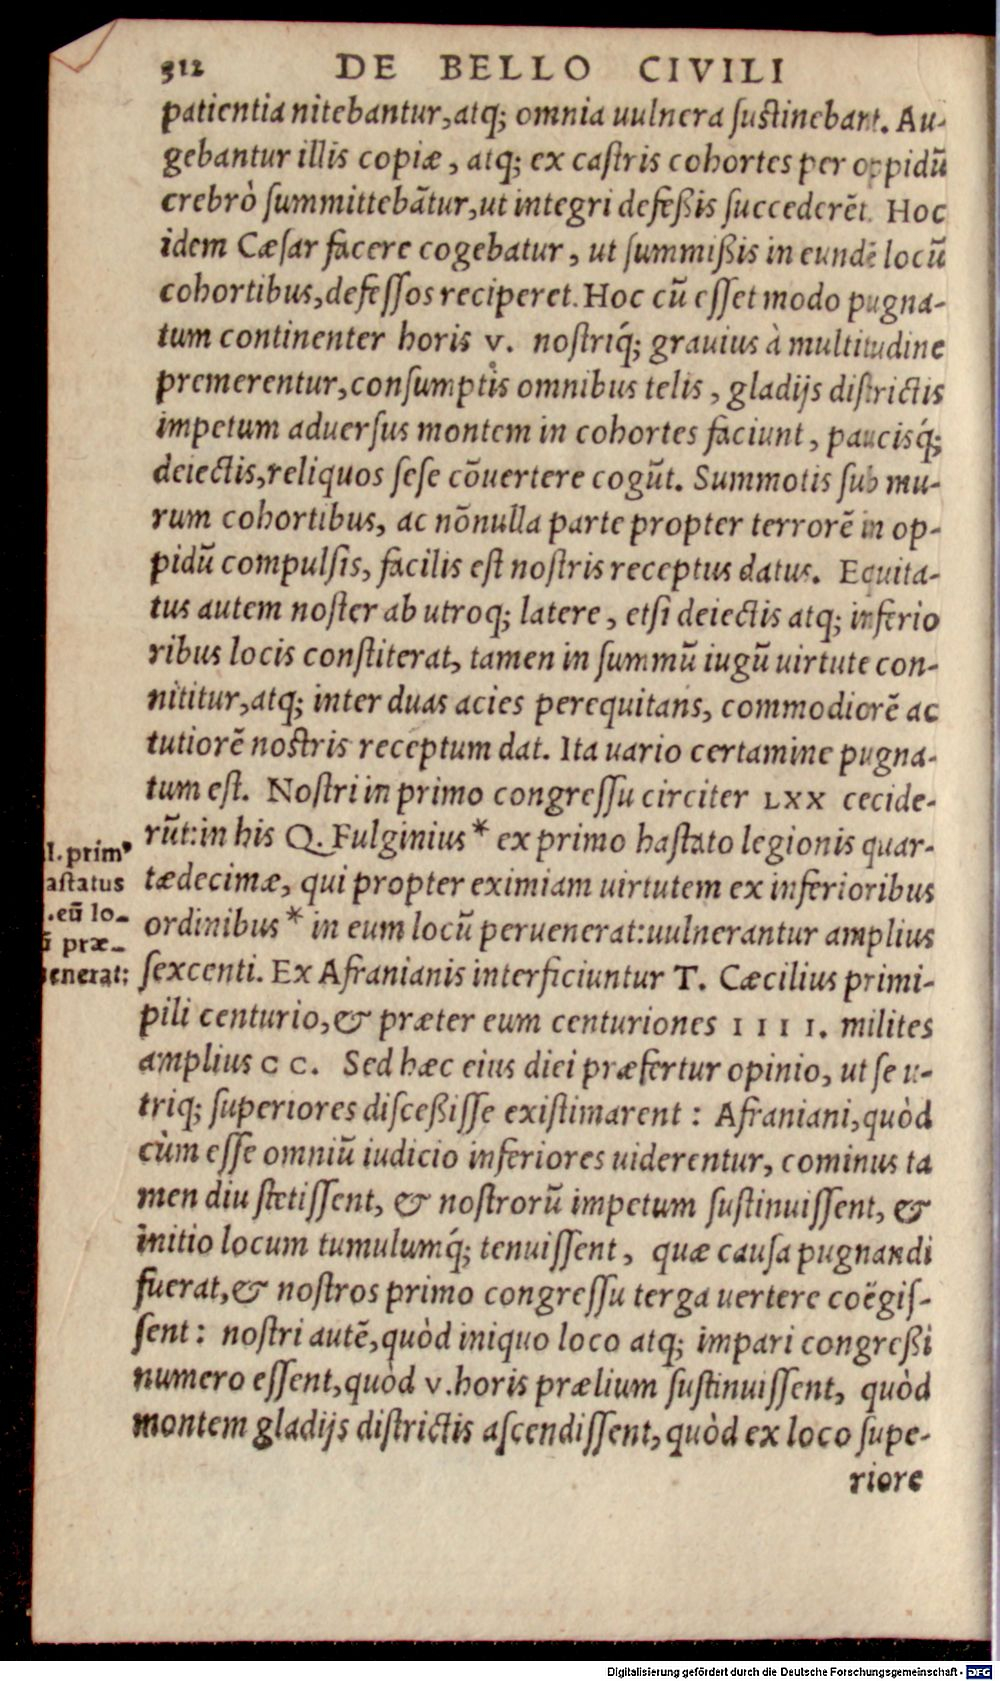 312 DE BELLO CIVILI
patientia nitebantur, atq; omnia uulnera ſuſtinebant. Au-
gebantur illis copiæ, atq; ex caſtris cohortes per oppidũ
crebrò ſummittebãtur, ut integri defeßis ſuccederẽt. Hoc
idem Cæſar facere cogebatur, ut ſummißis in eundẽ locũ
cohortibus, defeſſos reciperet. Hoc cũ eſſet modo pugna-
tum continenter horis v. noſtriq́; grauius à multitudine
premerentur, conſumptis omnibus telis, gladijs diſtrictis
impetum aduerſus montem in cohortes faciunt, paucisq́;
deiectis, reliquos ſeſe cõuertere cogũt. Summotis ſub mu-
rum cohortibus, ac nõnulla parte propter terrorẽ in op-
pidũ compulſis, facilis eſt noſtris receptus datus. Equita-
tus autem noſter ab utroq; latere, etſi deiectis atq; inferio
ribus locis conſtiterat, tamen in ſummũ iugũ uirtute con-
nititur, atq; inter duas acies perequitans, commodiorẽ ac
tutiorẽ noſtris receptum dat. Ita uario certamine pugna-
tum eſt. Noſtri in primo congreſſu circiter LXX cecide-
rũt: in his Q. Fulginius* ex primo haſtato legionis quar-
tædecimæ, qui propter eximiam uirtutem ex inferioribus
ordinibus* in eum locũ peruenerat: uulnerantur amplius
ſexcenti. Ex Afranianis interficiuntur T. Cæcilius primi-
pili centurio, & præter eum centuriones IIII. milites
amplius CC. Sed hæc eius diei præfertur opinio, ut ſe u-
triq; ſuperiores diſceßiſſe exiſtimarent: Afraniani, quòd
cùm eſſe omniũ iudicio inferiores uiderentur, cominus ta
men diu ſtetiſſent, & noſtrorũ impetum ſuſtinuiſſent, &
initio locum tumulumq́; tenuiſſent, quæ cauſa pugnandi
fuerat, & noſtros primo congreſſu terga uertere coëgiſ-
ſent: noſtri autẽ, quòd iniquo loco atq; impari congreßi
numero eſſent, quòd v. horis prælium ſuſtinuiſſent, quòd
montem gladijs diſtrictis aſcendiſſent, quòd ex loco ſupe-
riore
l. primꝰ
aſtatus
.eũ lo-
præ-
enerat:
Digitalisierung gefördert durch die Deutsche Forschungsgemeinschaft - DFG